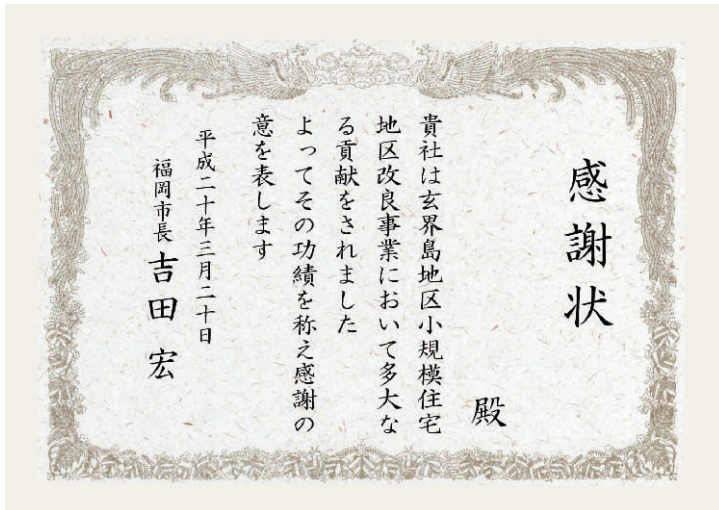 感謝状
殿
貴社は玄界島地区小規模住宅
地区改良事業において多大な
る貢献をされました
よってその功績を称え感謝の
意を表します
平成二十年三月二十日
福岡市長 吉田 宏